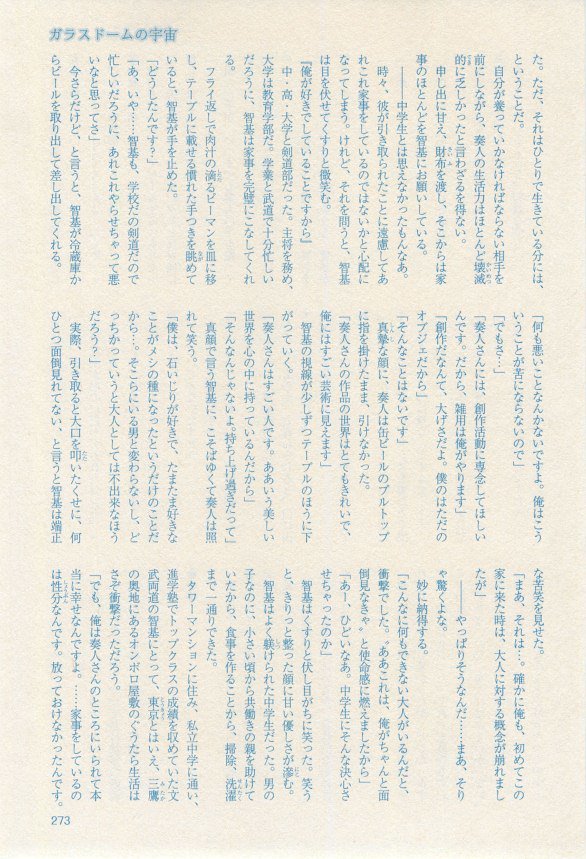 ガラスドームの宇宙
た。ただ、それはひとりで生きている分には、
ということだ。
自分が養っていかなければならない相手を
前にしながら、奏人の生活力はほとんど壊滅
的に乏しかったと言わざるを得ない。
申し出に甘え、財布を渡し、そこからは家
事のほとんどを智基にお願いしている。
――中学生とは思えなかったもんなあ。
時々、彼が引き取られたことに遠慮してあ
れこれ家事をしているのではないかと心配に
なってしまう。けれど、それを問うと、智基
は目を伏せてくすりと微笑む。
『俺が好きでしていることですから』
中・高・大学と剣道部だった。主将を務め、
大学は教育学部だ。学業と武道で十分忙しい
だろうに、智基は家事を完璧にこなしてくれ
る。
フライ返しで肉汁の滴るピーマンを皿に移
し、テーブルに載せる慣れた手つきを眺めて
いると、智基が手を止めた。
「どうしたんです?」
「あ、いや……智基も、学校だの剣道だので
忙しいだろうに、あれこれやらせちゃって悪
いなと思ってさ」
今さらだけど、と言うと、智基が冷蔵庫か
らビールを取り出して差し出してくれる。
「何も悪いことなんかないですよ。俺はこう
いうことが苦にならないので」
「でもさ…」
「奏人さんには、創作活動に専念してほしい
んです。だから、雑用は俺がやります」
「創作だなんて、大げさだよ。僕のはただの
オブジェだから」
「そんなことはないです」
真摯な顔に、奏人は缶ビールのプルトップ
に指を掛けたまま、引けなかった。
「奏人さんの作品の世界はとてもきれいで、
俺にはすごい芸術に見えます」
智基の視線が少しずつテーブルのほうに下
がっていく。
「奏人さんはすごい人です。ああいう美しい
世界を心の中に持っているんだから」
「そんなんじゃないよ。持ち上げ過ぎだって」
真顔で言う智基に、こそばゆくて奏人は照
れて笑う。
「僕は、石いじりが好きで、たまたま好きな
ことがメシの種になったというだけのことだ
から…。そこらにいる男と変わらないし、ど
っちかっていうと大人としては不出来なほう
だろう?」
実際、引き取ると大口を叩いたくせに、何
ひとつ面倒見れてない、と言うと智基は端正
な苦笑を見せた。
「まあ、それは…。確かに俺も、初めてこの
家に来た時は、大人に対する概念が崩れまし
たが」
――やっぱりそうなんだ……まあ、そり
ゃ驚くよな。
妙に納得する。
「こんなに何もできない大人がいるんだと、
衝撃でした。〝ああこれは、俺がちゃんと面
倒見なきゃ〟と使命感に燃えましたから」
「あー、ひどいなあ。中学生にそんな決心さ
せちゃったのか」
智基はくすりと伏し目がちに笑った。笑う
と、きりっと整った顔に甘い優しさが滲む。
智基はよく躾けられた中学生だった。男の
子なのに、小さい頃から共働きの親を助けて
いたから、食事を作ることから、掃除、洗濯
まで一通りできた。
タワーマンションに住み、私立中に通い、
進学塾でトップクラスの成績を収めていた文
武両道の智基にとって、東京とはいえ、三鷹
の奥地にあるオンボロ屋敷のぐうたら生活は
さぞ衝撃だっただろう。
「でも、俺は奏人さんのところにいられて本
当に幸せなんですよ。……家事をしているの
は性分なんです。放っておけなかったんです。
273